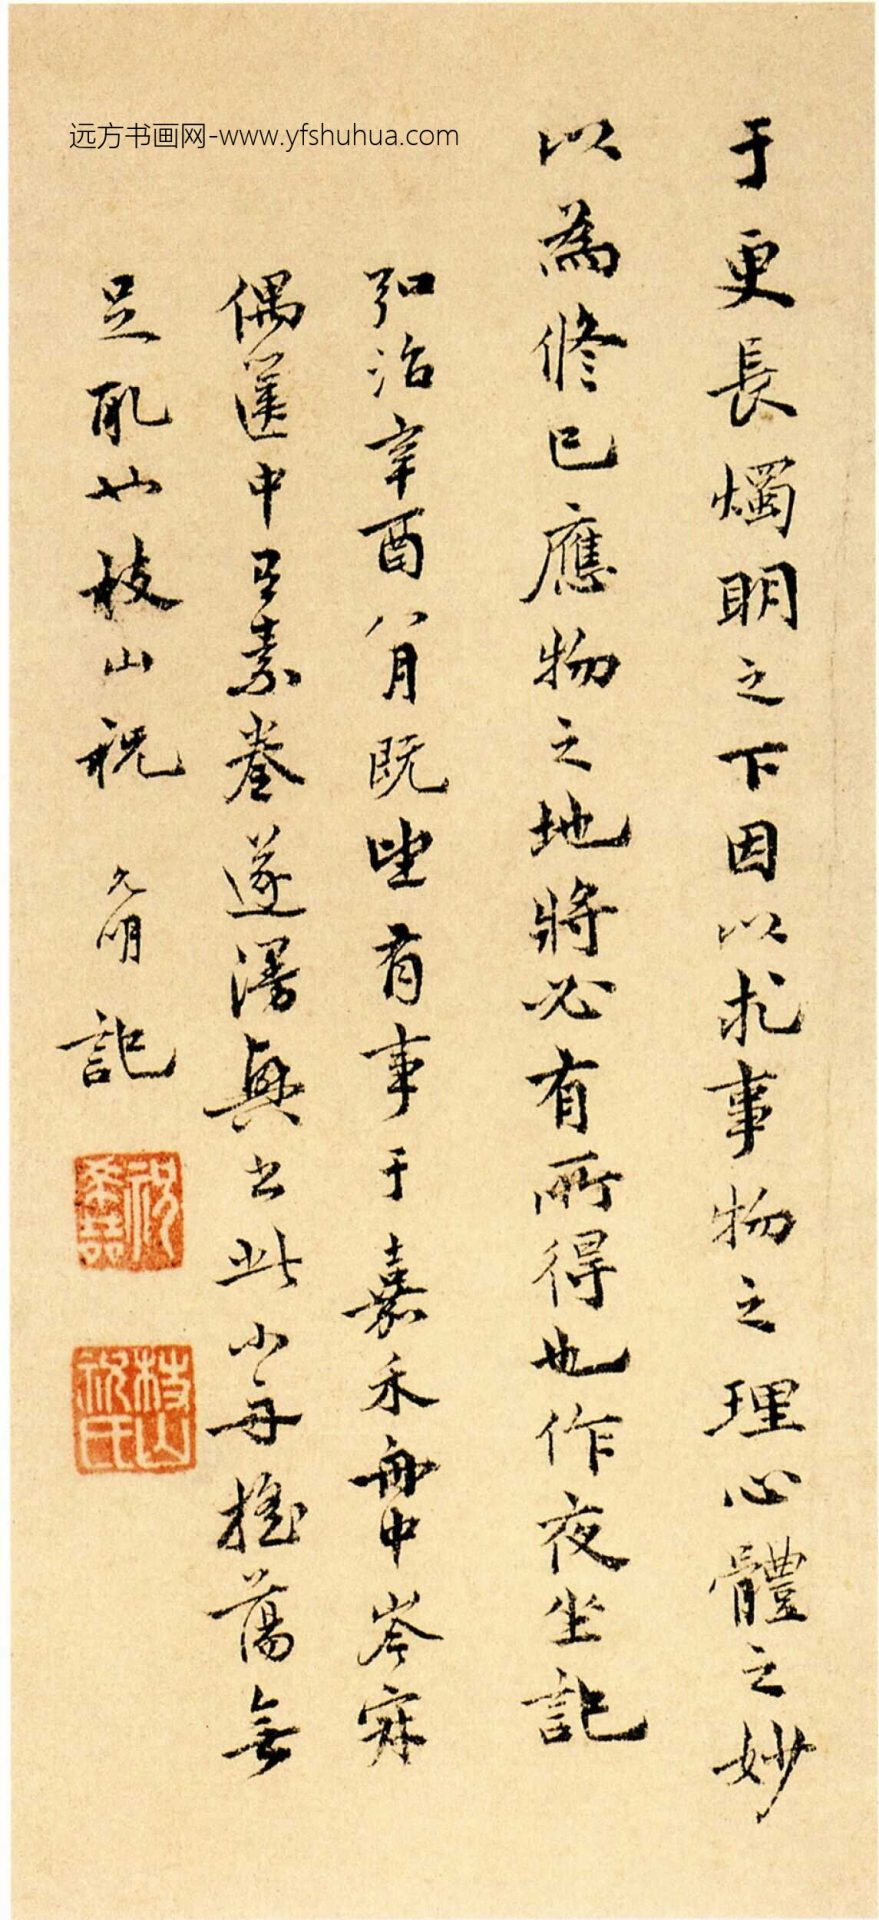 远方书画网-www.yfshuhua.com
于更長燭明之下因以求事物之理心體之妙
以為修已應物之地將必有所得也作夜坐記
弘治辛酉八月既望有事于嘉禾舟中岑寂
偶篋中有素卷遂漫興書此小舟搖蕩無
足取也枝山祝允明記
祝希哲
枝山祝氏